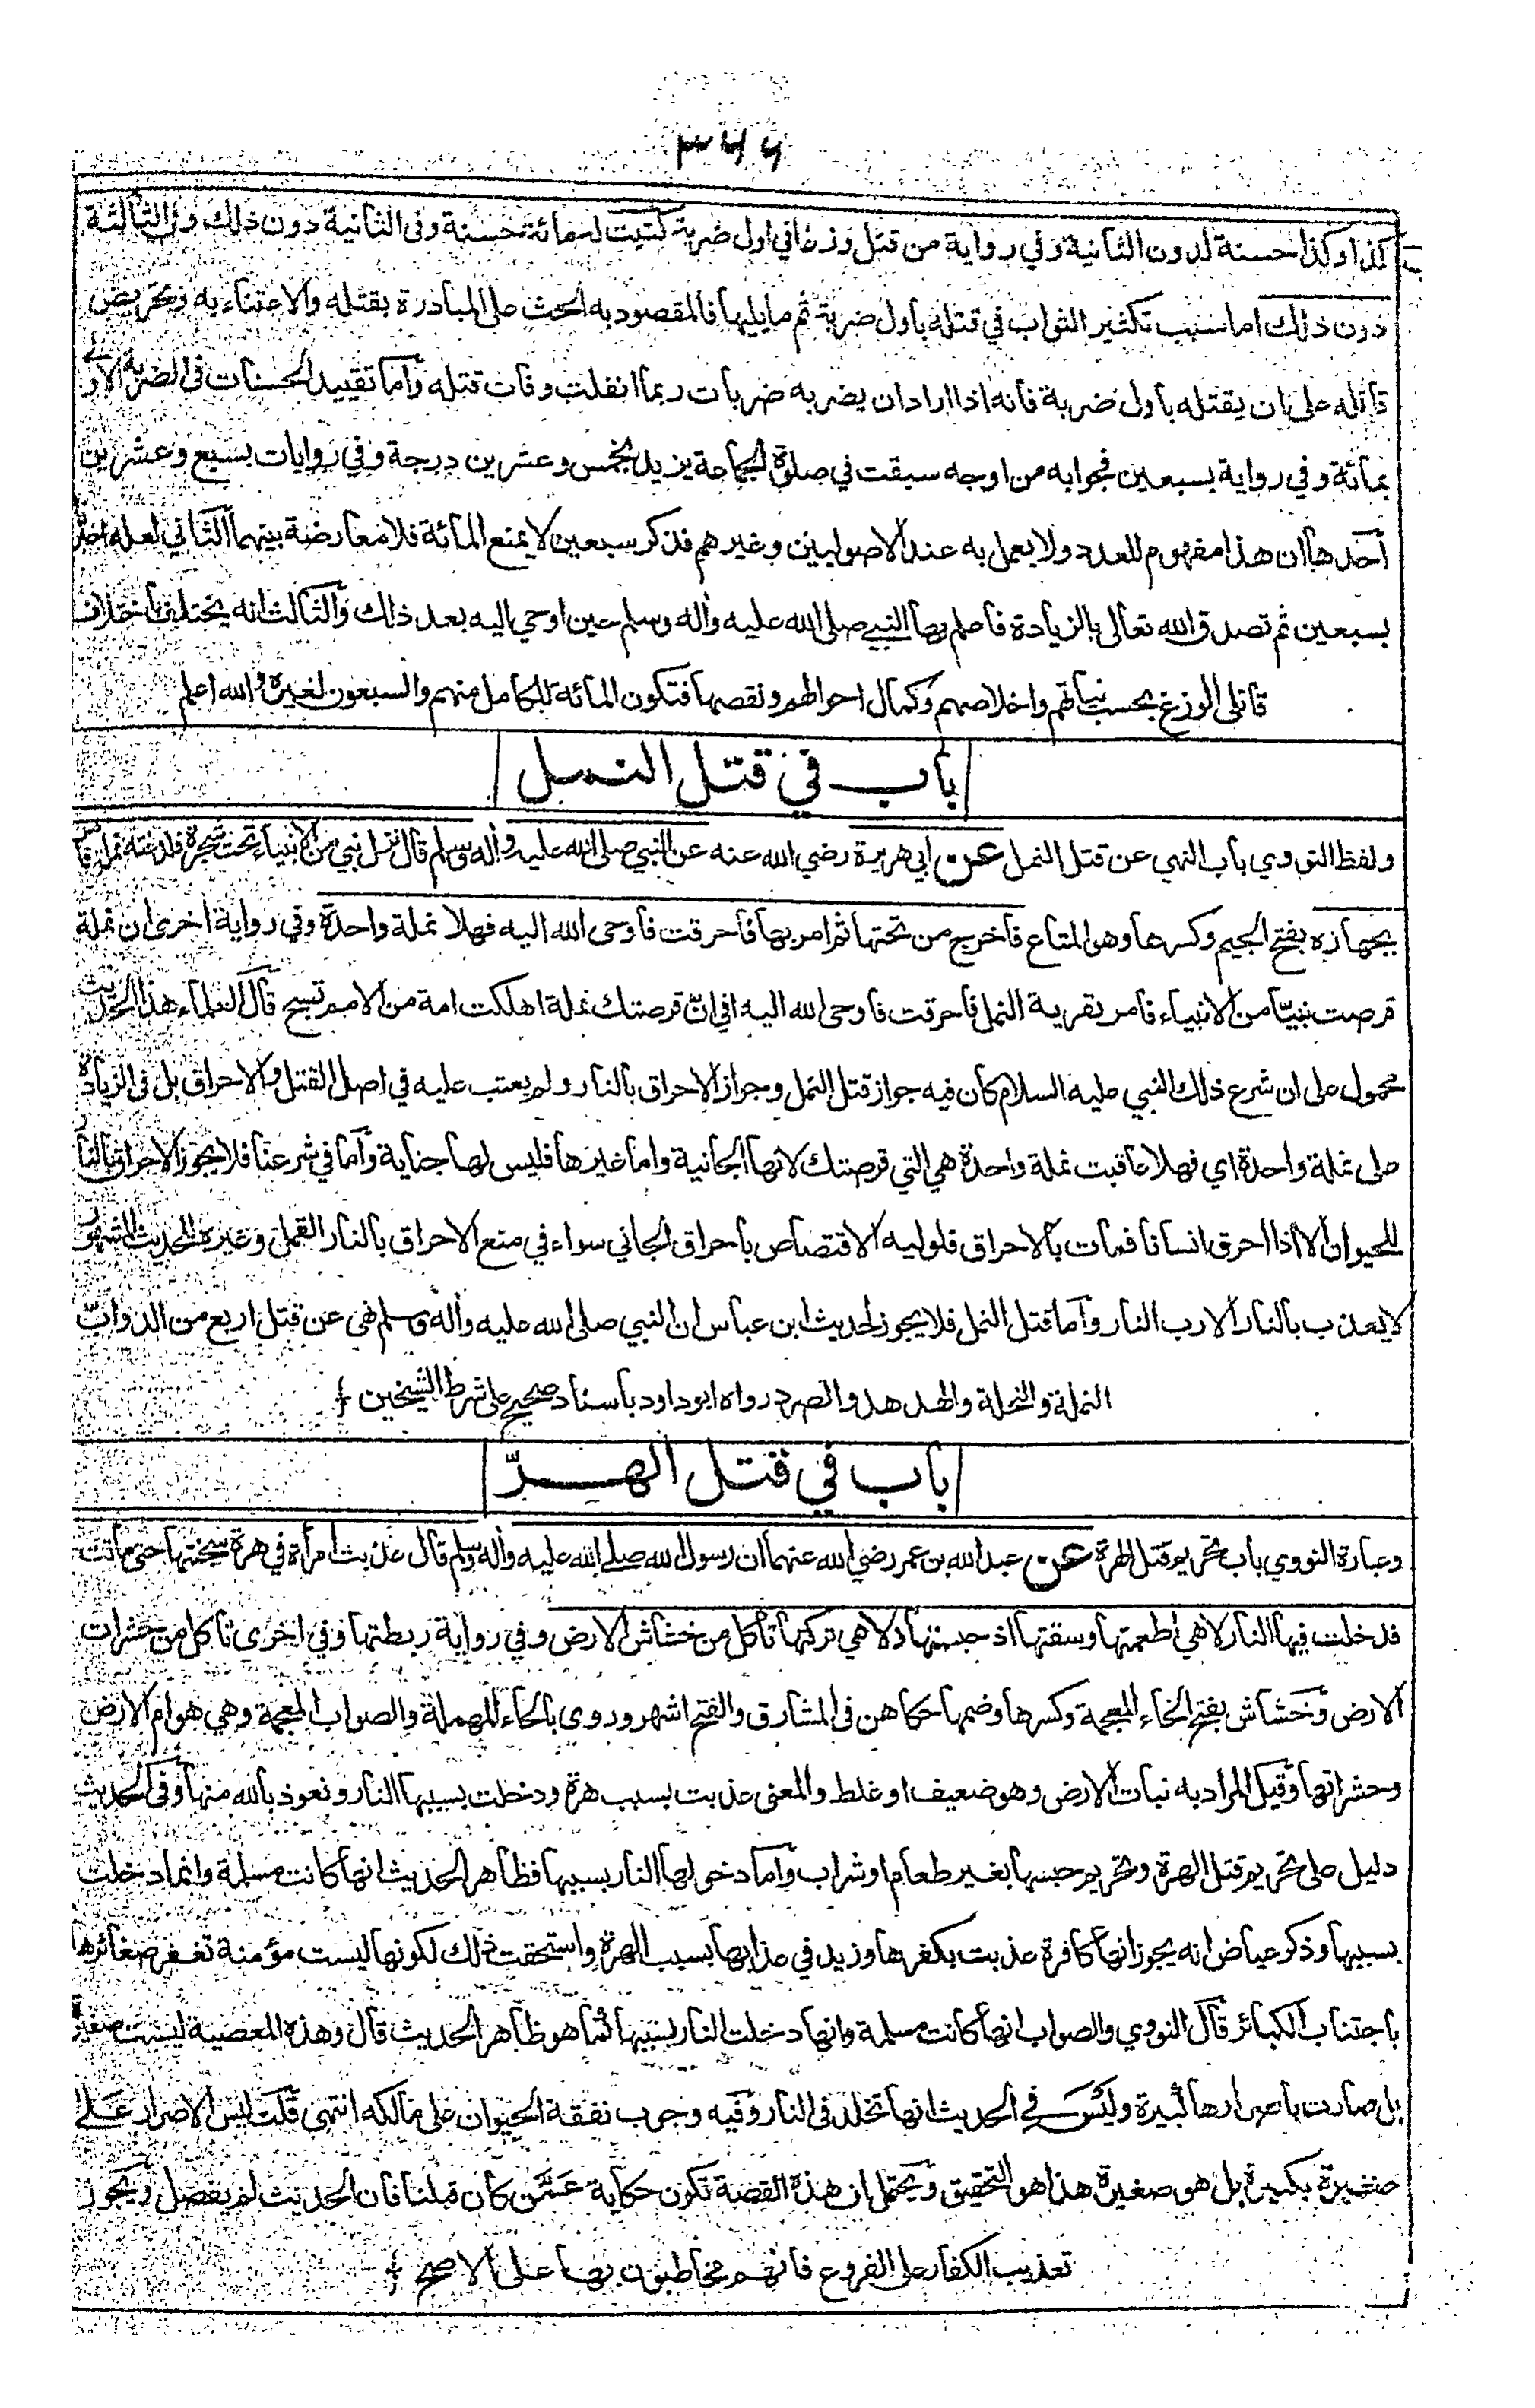 ٣٦٦
كذا وكذا حسنة لدون الثانية وفي رواية من قتل وزغا في اول ضربة كتبت له مائة حسنة وفي الثانية دون ذلك وفي الثالثة
دون ذلك اما سبب تكثير الثواب في قتله باول ضربة ثم ما يليها فالمقصود به الحث على المبادرة بقتله والاعتناء به وتحريض
قاتله على ان يقتله باول ضربة فانه اذا اراد ان يضربه ضربات ربما انفلت وفات قتله وأما تقييد الحسنات في الضربة الاولى
بمائة وفي رواية بسبعين فجوابه من اوجه سبقت في صلوة الجماعة يزيد بخمس وعشرين درجة وفي روايات بسبع وعشرين
أحدها ان هذا مفهوم للعدد ولا يعمل به عند الاصوليين وغيرهم فذكر سبعين لا يمنع المائة فلا معارضة بينهما الثاني لعله اخبر
بسبعين ثم تصدق الله تعالى بالزيادة فاعلم بها النبي صلى الله عليه وأله وسلم حين اوحي اليه بعد ذلك والثالث انه يختلف باختلاف
قاتلي الوزغ بحسب نياتهم واخلاصهم وكمال احوالهم ونقصها فتكون المائة للكامل منهم والسبعون لغيره والله اعلم
باب في قتل النمل
ولفظ النووي باب النهي عن قتل النمل عن ابي هريرة رضي الله عنه عن النبي صلى الله عليه وأله وسلم قال نزل نبي من الانبياء تحت شجرة فلدغته نملة فامر
بجهازه بفتح الجيم وكسرها وهو المتاع فاخرج من تحتها ثم امر بها فاحرقت فاوحى الله اليه فهلا نملة واحدة وفي رواية اخرى ان نملة
قرصت نبيّا من الانبياء فامر بقرية النمل فاحرقت فاوحى الله اليه افي انّ قرصتك نملة اهلكت امة من الامم تسبح قال العلماء هذا الحديث
محمول على ان شرع ذلك النبي عليه السلام كان فيه جواز قتل النمل وجواز الاحراق بالنار ولم يعتب عليه في اصل القتل والاحراق بل في الزيادة
على نملة واحدة اي فهلا عاقبت نملة واحدة هي التي قرصتك لانها الجانية واما غيرها فليس لها جناية وأما في شرعنا فلا يجوز الاحراق بالنار
للحيوان الا اذا احرق انسانا فمات بالاحراق فلوليه الاقتصاص باحراق الجاني سواء في منع الاحراق بالنار القمل وغيره للحديث المشهور
لا يعذب بالنار الا رب النار وأما قتل النمل فلا يجوز لحديث ابن عباس ان النبي صلى الله عليه وأله وسلم نهى عن قتل اربع من الدوابّ
النملة والنحلة والهدهد والصرد رواه ابوداود باسناد صحيح على شرط الشيخين
باب في قتل الهرّ
وعبارة النووي باب تحريم قتل الهرة عن عبدالله بن عمر رضي الله عنهما ان رسول الله صلى الله عليه وأله وسلم قال عذبت امرأة في هرة سجنتها حتى ماتت
فدخلت فيها النار لا هي اطعمتها وسقتها اذ حبستها ولا هي تركتها تأكل من خشاش الارض وفي رواية ربطتها وفي اخرى تأكل من حشرات
الارض وخشاش بفتح الخاء المعجمة وكسرها وضمها حكاهن في المشارق والفتح اشهر وروي بالحاء المهملة والصواب المعجمة وهي هوام الارض
وحشراتها وقيل المراد به نبات الارض وهو ضعيف او غلط والمعنى عذبت بسبب هرة ودخلت بسببها النار ونعوذ بالله منها وفي الحديث
دليل على تحريم قتل الهرة وتحريم حبسها بغير طعام او شراب وأما دخولها النار بسببها فظاهر الحديث انها كانت مسلمة وانما دخلت
بسببها وذكر عياض انه يجوز انها كافرة عذبت بكفرها وزيد في عذابها بسبب الهرة واستحقت ذلك لكونها ليست مؤمنة تغفر صغائرها
باجتناب الكبائر قال النووي والصواب انها كانت مسلمة وانها دخلت النار بسببها كما هو ظاهر الحديث قال وهذه المعصية ليست صغيرة
بل صارت باصرارها كبيرة وليس في الحديث انها تخلد في النار وفيه وجوب نفقة الحيوان على مالكه انتهى قلت ليس الاصرار على
صغيرة بكبيرة بل هو صغيرة هذا هو التحقيق ويحتمل ان هذه القصة تكون حكاية عمن كان قبلنا فان الحديث لم يفصل ويجوز
تعذيب الكفار على الفروع فانهم مخاطبون بها على الاصح